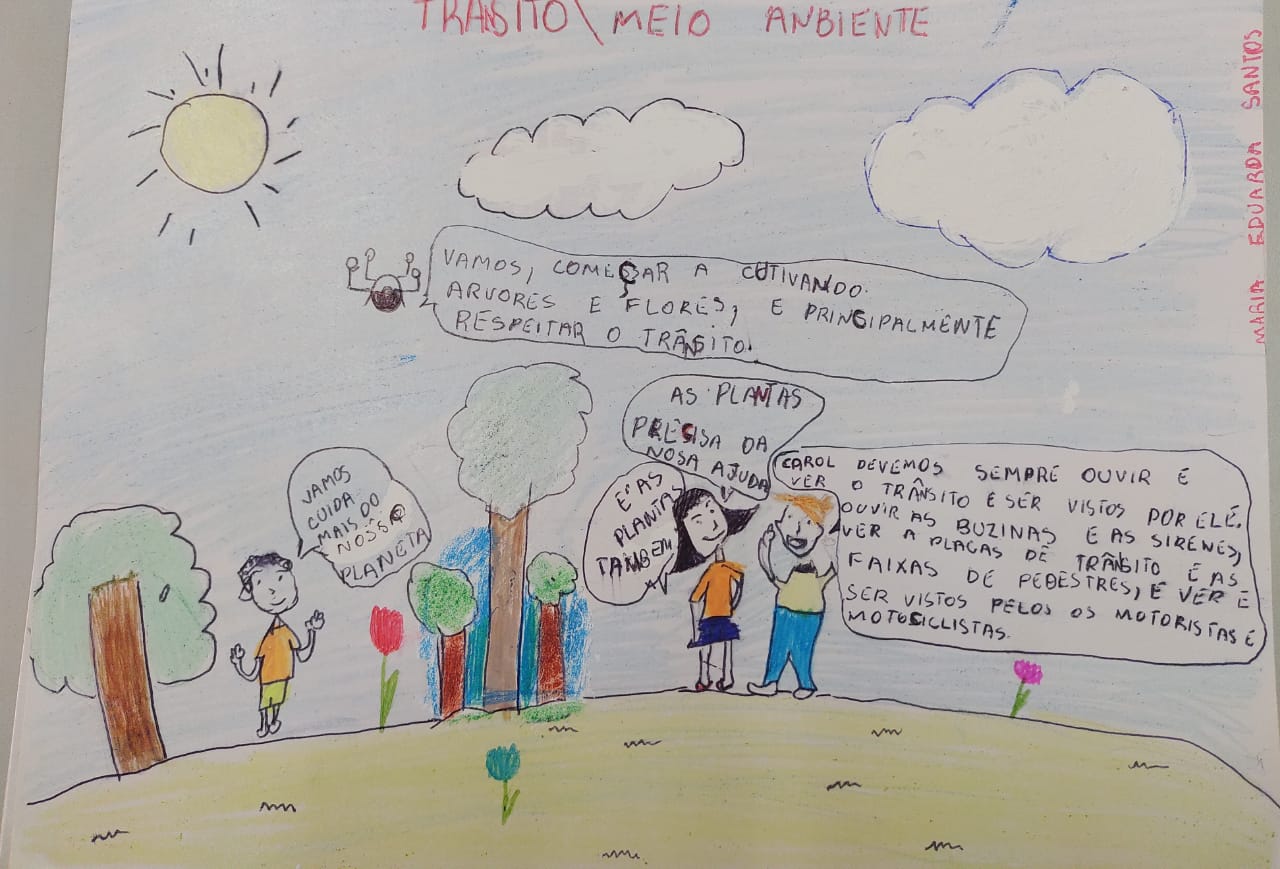 TRÂNSITO\MEIO ANBIENTE
MARIA EDUARDA SANTOS
VAMOS, COMEÇAR A CUTIVANDO
ARVORES E FLORES, E PRINCIPALMENTE
RESPEITAR O TRÂNSITO.
VAMOS
CUIDA
MAIS DO
NOSSO
PLANETA
AS PLANTAS
PRECISA DA
NOSA AJUDA
E AS
PLANTAS
TAMBEM
CAROL DEVEMOS SEMPRE OUVIR E
VER O TRÂNSITO E SER VISTOS POR ELE.
OUVIR AS BUZINAS E AS SIRENES,
VER A PLACAS DE TRÂNSITO E AS
FAIXAS DE PEDESTRES, E VER E
SER VISTOS PELOS OS MOTORISTAS E
MOTOCICLISTAS.